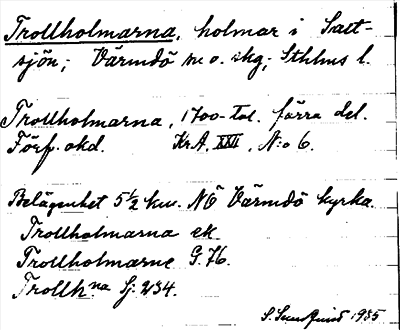 Trollholmarna, holmar i Salt-
sjön; Värmdö sn o. skg; Sthlms l.
Trollholmarna, 1700-tal. förra del.
Förf. okd. KrA, XXII, N:o 6.
Belägenhet 5½ km. NÖ Värmdö kyrka.
Trollholmarna ek.
Trollholmarne G.76.
Trollh.na Sj: 234.
S. Sundquist 1935